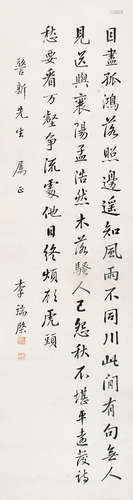 目盡孤鴻落照邊遙知風雨不同川此間有句無人
見送與襄陽孟浩然木落騷人已怨秋不堪平遠發詩
愁要看万壑爭流處他日終煩顧虎頭
新先生屬正
李端棨